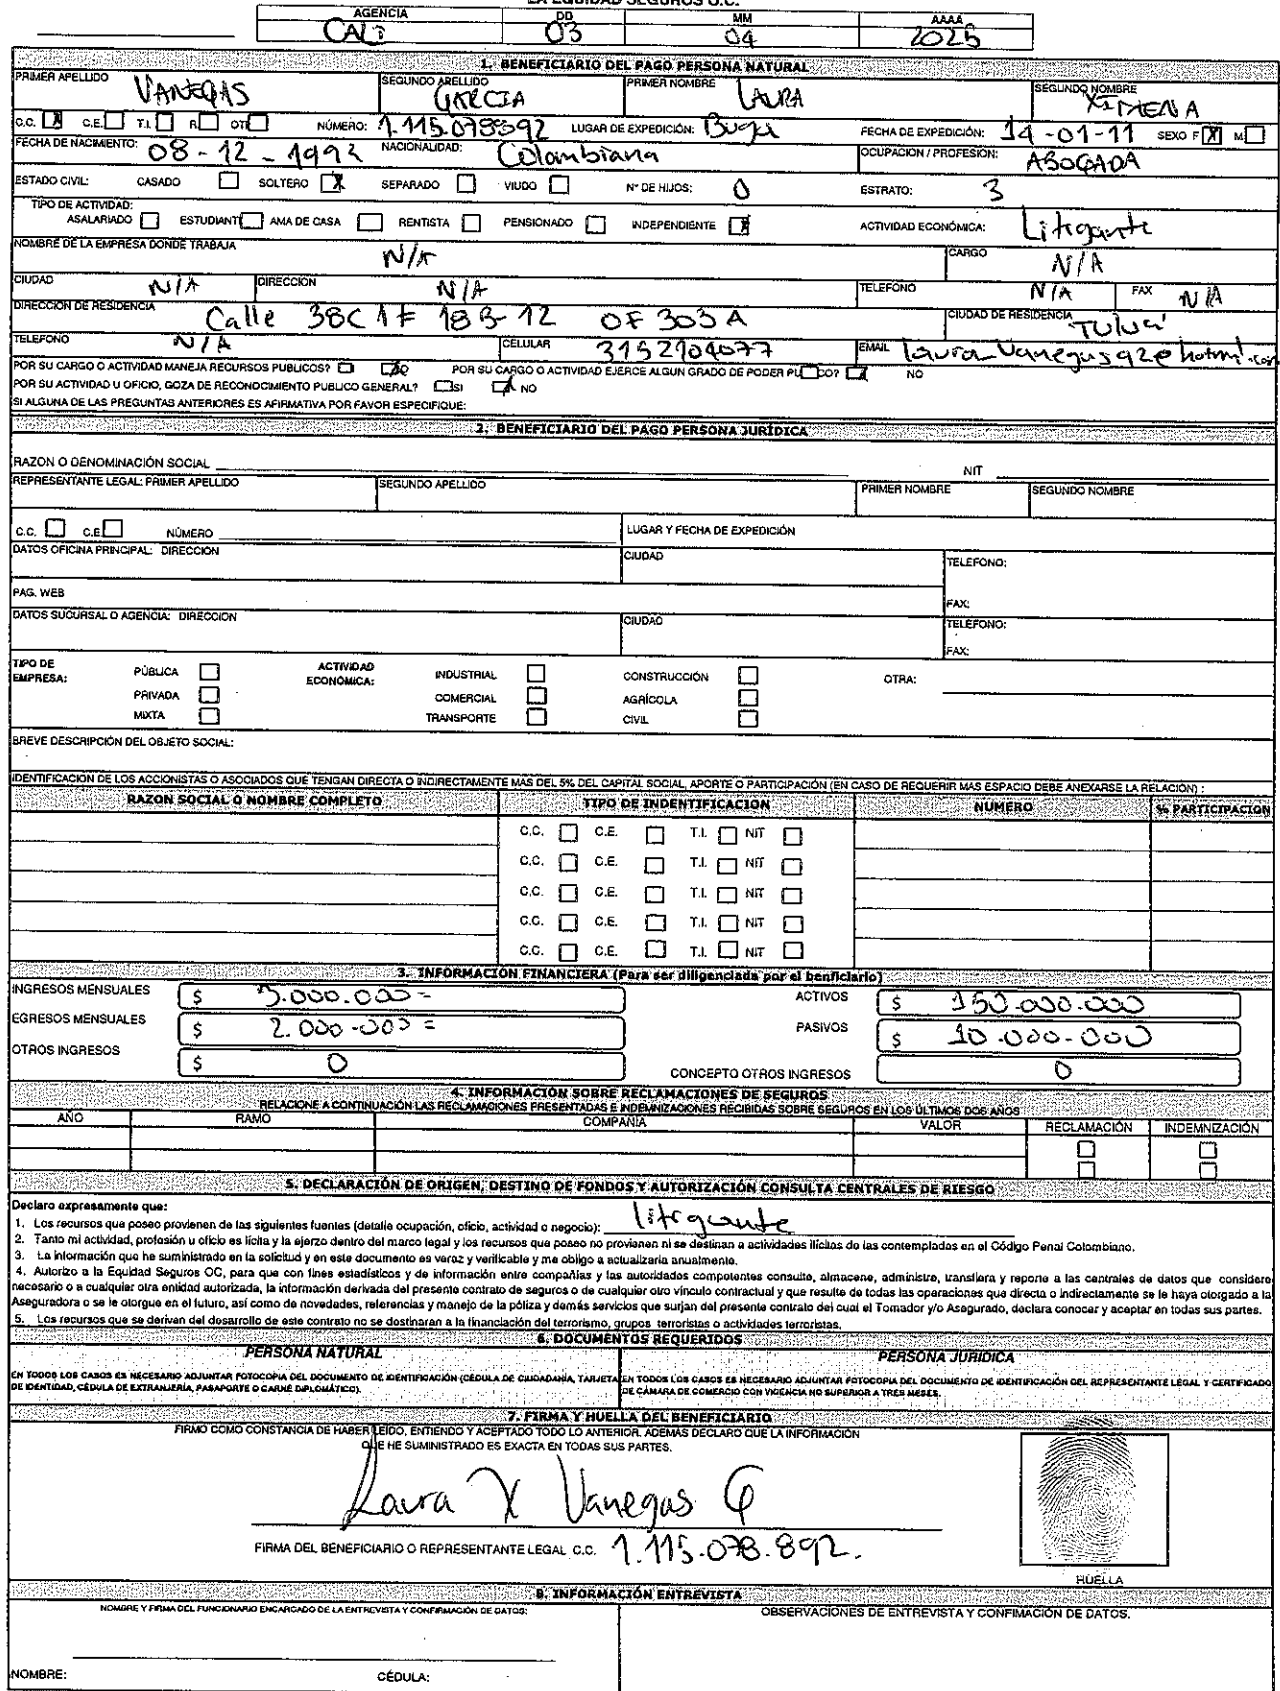 LA EQUIDAD SEGUROS O.C.
AGENCIA DD MM AAAA
CALI 03 04 2025
1. BENEFICIARIO DEL PAGO PERSONA NATURAL
PRIMER APELLIDO VANEGAS SEGUNDO APELLIDO GARCIA PRIMER NOMBRE LAURA SEGUNDO NOMBRE XIMENA
C.C. X C.E. T.I. R OT NÚMERO: LUGAR DE EXPEDICIÓN: Buga FECHA DE EXPEDICIÓN: 14-01-11 SEXO F X M
FECHA DE NACIMIENTO: 08-12-1992 NACIONALIDAD: Colombiana OCUPACION / PROFESIÓN: ABOGADA
ESTADO CIVIL: CASADO SOLTERO X SEPARADO VIUDO N° DE HIJOS: 0 ESTRATO: 3
TIPO DE ACTIVIDAD:
ASALARIADO ESTUDIANT AMA DE CASA RENTISTA PENSIONADO INDEPENDIENTE X ACTIVIDAD ECONÓMICA: Litigante
NOMBRE DE LA EMPRESA DONDE TRABAJA N/A CARGO N/A
CIUDAD N/A DIRECCIÓN N/A TELEFONO N/A FAX N/A
DIRECCION DE RESIDENCIA Calle 38C 1F 18B-12 OF 303A CIUDAD DE RESIDENCIA Tuluá
TELEFONO N/A CELULAR 3152904077 EMAIL laura_vanegas92@hotmail.com
POR SU CARGO O ACTIVIDAD MANEJA RECURSOS PUBLICOS? POR SU CARGO O ACTIVIDAD EJERCE ALGUN GRADO DE PODER PUBLICO? NO
POR SU ACTIVIDAD U OFICIO, GOZA DE RECONOCIMIENTO PUBLICO GENERAL? SI X NO
SI ALGUNA DE LAS PREGUNTAS ANTERIORES ES AFIRMATIVA POR FAVOR ESPECIFIQUE:
2. BENEFICIARIO DEL PAGO PERSONA JURÍDICA
RAZON O DENOMINACIÓN SOCIAL NIT
REPRESENTANTE LEGAL: PRIMER APELLIDO SEGUNDO APELLIDO PRIMER NOMBRE SEGUNDO NOMBRE
C.C. C.E. NÚMERO LUGAR Y FECHA DE EXPEDICIÓN
DATOS OFICINA PRINCIPAL: DIRECCION CIUDAD TELEFONO:
PAG. WEB FAX:
DATOS SUCURSAL O AGENCIA: DIRECCION CIUDAD TELEFONO:
FAX:
TIPO DE EMPRESA: PÚBLICA ACTIVIDAD ECONÓMICA: INDUSTRIAL CONSTRUCCIÓN OTRA:
PRIVADA COMERCIAL AGRÍCOLA
MIXTA TRANSPORTE CIVIL
BREVE DESCRIPCIÓN DEL OBJETO SOCIAL:
IDENTIFICACIÓN DE LOS ACCIONISTAS O ASOCIADOS QUE TENGAN DIRECTA O INDIRECTAMENTE MAS DEL 5% DEL CAPITAL SOCIAL, APORTE O PARTICIPACIÓN (EN CASO DE REQUERIR MAS ESPACIO DEBE ANEXARSE LA RELACIÓN) :
RAZON SOCIAL O NOMBRE COMPLETO TIPO DE INDENTIFICACION NUMERO % PARTICIPACION
C.C. C.E. T.I. NIT
C.C. C.E. T.I. NIT
C.C. C.E. T.I. NIT
C.C. C.E. T.I. NIT
C.C. C.E. T.I. NIT
3. INFORMACIÓN FINANCIERA (Para ser diligenciada por el benficiario)
INGRESOS MENSUALES $ 3.000.000= ACTIVOS $ 150.000.000
EGRESOS MENSUALES $ 2.000.000= PASIVOS $ 10.000.000
OTROS INGRESOS $ 0 CONCEPTO OTROS INGRESOS 0
4. INFORMACIÓN SOBRE RECLAMACIONES DE SEGUROS
RELACIONE A CONTINUACIÓN LAS RECLAMACIONES PRESENTADAS E INDEMNIZACIONES RECIBIDAS SOBRE SEGUROS EN LOS ÚLTIMOS DOS AÑOS
AÑO RAMO COMPAÑIA VALOR RECLAMACIÓN INDEMNIZACIÓN
5. DECLARACIÓN DE ORIGEN, DESTINO DE FONDOS Y AUTORIZACIÓN CONSULTA CENTRALES DE RIESGO
Declaro expresamente que:
1. Los recursos que poseo provienen de las siguientes fuentes (detalle ocupación, oficio, actividad o negocio): litigante
2. Tanto mi actividad, profesión u oficio es lícita y la ejerzo dentro del marco legal y los recursos que poseo no provienen ni se destinan a actividades ilícitas de las contempladas en el Código Penal Colombiano.
3. La información que he suministrado en la solicitud y en este documento es veraz y verificable y me obligo a actualizarla anualmente.
4. Autorizo a la Equidad Seguros OC, para que con fines estadísticos y de información entre compañías y las autoridades competentes consulte, almacene, administre, transfiera y reporte a las centrales de datos que considere
necesario o a cualquier otra entidad autorizada, la información derivada del presente contrato de seguros o de cualquier otro vínculo contractual y que resulte de todas las operaciones que directa o indirectamente se le haya otorgado a la
Aseguradora o se le otorgue en el futuro, así como de novedades, referencias y manejo de la póliza y demás servicios que surjan del presente contrato del cual el Tomador y/o Asegurado, declara conocer y aceptar en todas sus partes.
5. Los recursos que se deriven del desarrollo de este contrato no se destinaran a la financiación del terrorismo, grupos terroristas o actividades terroristas.
6. DOCUMENTOS REQUERIDOS
PERSONA NATURAL PERSONA JURIDICA
EN TODOS LOS CASOS ES NECESARIO ADJUNTAR FOTOCOPIA DEL DOCUMENTO DE IDENTIFICACIÓN (CÉDULA DE CIUDADANÍA, TARJETA DE IDENTIDAD, CÉDULA DE EXTRANJERÍA, PASAPORTE O CARNÉ DIPLOMÁTICO).
EN TODOS LOS CASOS ES NECESARIO ADJUNTAR FOTOCOPIA DEL DOCUMENTO DE IDENTIFICACIÓN DEL REPRESENTANTE LEGAL Y CERTIFICADO DE CÁMARA DE COMERCIO CON VIGENCIA NO SUPERIOR A TRES MESES.
7. FIRMA Y HUELLA DEL BENEFICIARIO
FIRMO COMO CONSTANCIA DE HABER LEIDO, ENTIENDO Y ACEPTADO TODO LO ANTERIOR. ADEMÁS DECLARO QUE LA INFORMACIÓN
QUE HE SUMINISTRADO ES EXACTA EN TODAS SUS PARTES.
Laura X Vanegas G
FIRMA DEL BENEFICIARIO O REPRESENTANTE LEGAL C.C. 1.115.078.892.
HUELLA
8. INFORMACIÓN ENTREVISTA
NOMBRE Y FIRMA DEL FUNCIONARIO ENCARGADO DE LA ENTREVISTA Y CONFIRMACIÓN DE DATOS: OBSERVACIONES DE ENTREVISTA Y CONFIMACIÓN DE DATOS.
NOMBRE: CÉDULA: